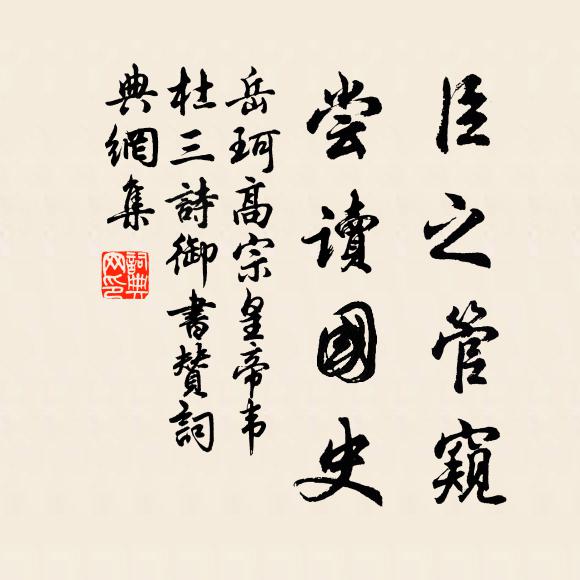 臣之管窺
尝讀國史
岳珂高宗皇帝韦
杜三詩御書賛詞
典網集
詞典
网印